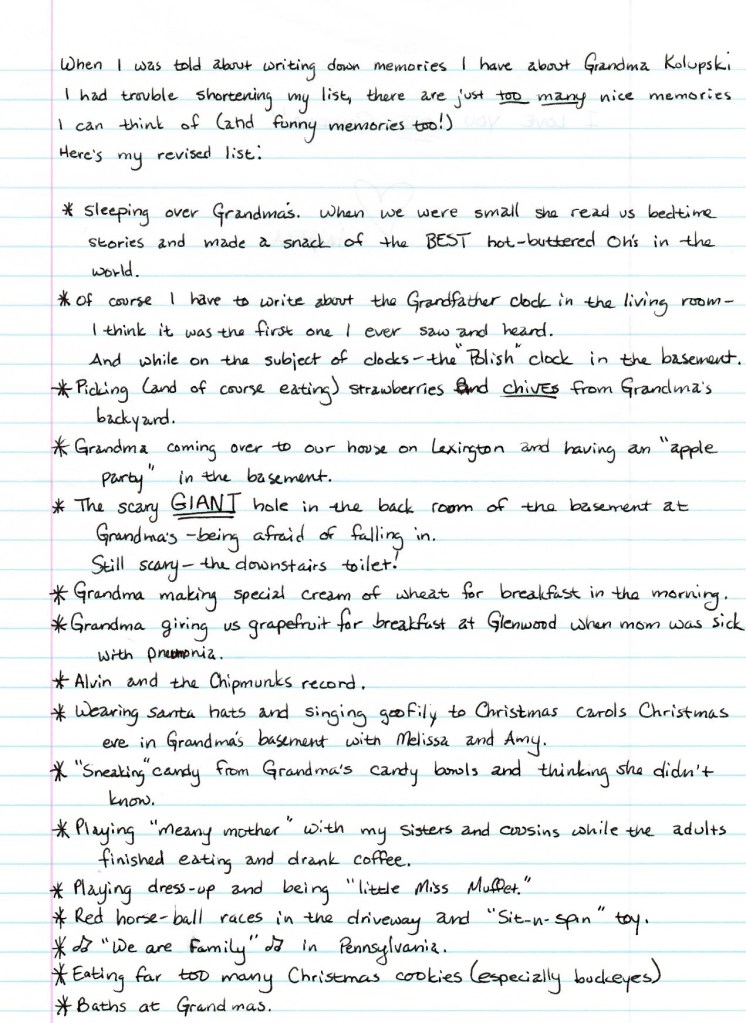 When I was told about writing down memories I have about Grandma Kolupski
I had trouble shortening my list, there are just too many nice memories
I can think of (and funny memories too!)
Here's my revised list:
* Sleeping over Grandma's. When we were small she read us bedtime
stories and made a snack of the BEST hot-buttered Oh's in the
world.
* Of course I have to write about the Grandfather clock in the living room-
I think it was the first one I ever saw and heard.
And while on the subject of clocks-the "Polish" clock in the basement.
* Picking (and of course eating) strawberries and chives from Grandma's
backyard.
* Grandma coming over to our house on Lexington and having an "apple
party" in the basement.
* The scary GIANT hole in the back room of the basement at
Grandma's -being afraid of falling in.
Still scary- the downstairs toilet!
* Grandma making special cream of wheat for breakfast in the morning.
* Grandma giving us grapefruit for breakfast at Glenwood when mom was sick
with pneumonia.
* Alvin and the Chipmunks record.
* Wearing santa hats and singing goofily to Christmas carols Christmas
eve in Grandma's basement with Melissa and Amy.
* "Sneaking" candy from Grandma's candy bowls and thinking she didn't
know.
* Playing "meany mother" with my sisters and cousins while the adults
finished eating and drank coffee.
* Playing dress-up and being "little Miss Muffet."
* Red horse-ball races in the driveway and "Sit-n-spin" toy.
* ♫ "We are Family" ♫ in Pennsylvania.
* Eating far too many Christmas cookies (especially buckeyes)
* Baths at Grandmas.